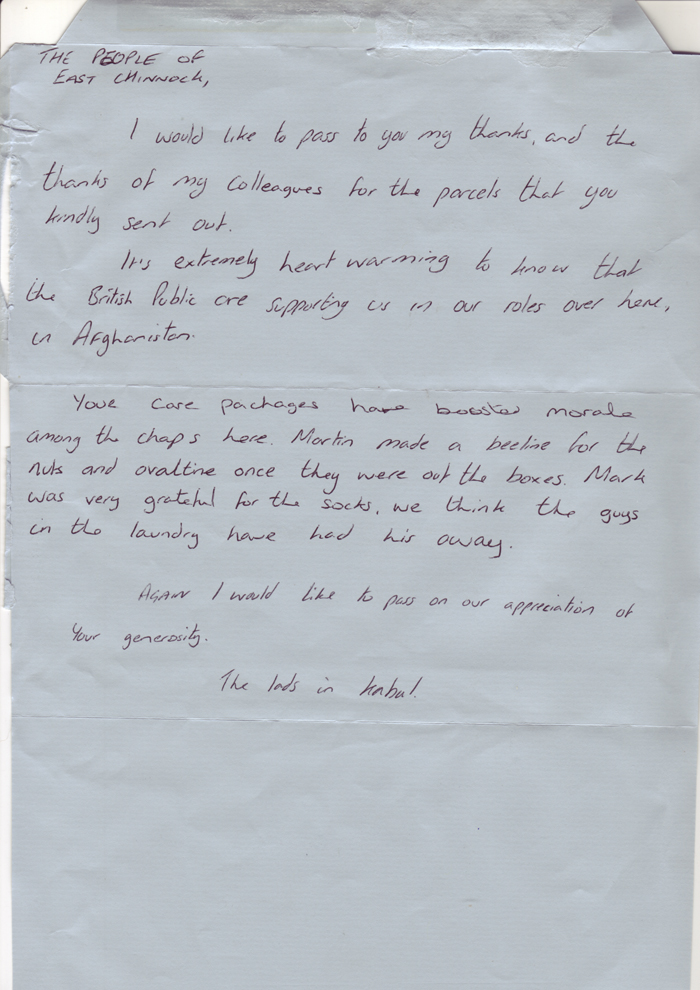 THE PEOPLE OF
EAST CHINNOCK,
I would like to pass to you my thanks, and the
thanks of my colleagues for the parcels that you
kindly sent out.
It's extremely heart warming to know that
the British Public are supporting us in our roles over here,
in Afghanistan.
Your care packages have boosted morale
among the chaps here. Martin made a beeline for the
nuts and ovaltine once they were out the boxes. Mark
was very grateful for the socks, we think the guys
in the laundry have had his away.
AGAIN I would like to pass on our appreciation of
Your generosity.
The lads in Kabul.